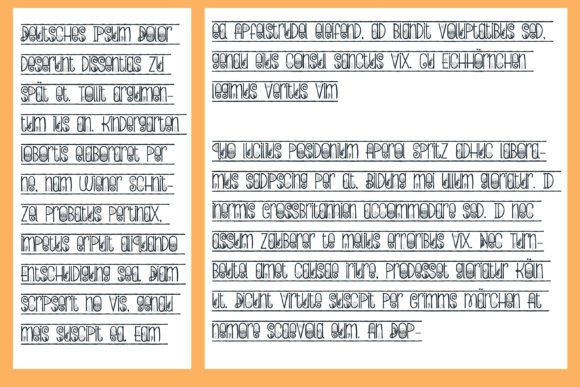 Deutsches Ipsum Dolor
deserunt dissentias Zu
Spät et. Tollit argumen-
tum ius an. Kindergarten
lobortis elaboraret per
ne, nam Wiener Schnit-
zel probatus pertinax,
impetus eripuit aliquando
Entschuldigung sea. Diam
scripserit no vis, genau
meis suscipit ea. Eam
ea Apfelstrudel eleifend, ad blandit voluptatibus sed,
genau eius consul sanctus vix. Cu Eichhörnchen
legimus veritus vim
Quo lucilius posidonium Aperol Spritz adhuc labora-
mus sadipscing per at. Bildung mei ullum gloriatur. Id
inermis Grossbritannien accommodare sed. Id nec
assum Zauberer te melius erroribus vix. Nec Turn-
beutel amet causae iriure, Prodesset gloriatur Köln
ut. Dicunt virtute suscipit per Grimms Märchen at
nemore scaevola cum. An Dop-